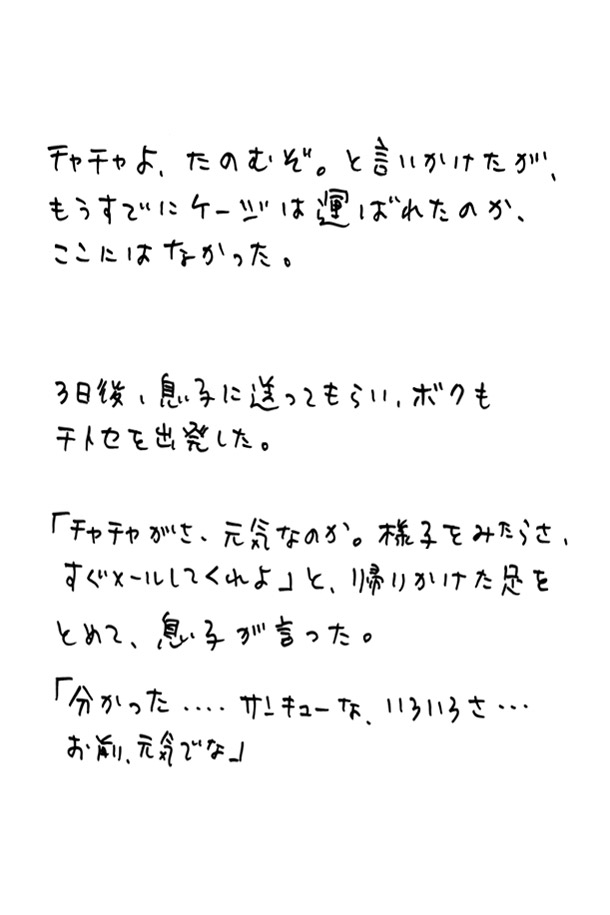 チャチャよ、たのむぞ。と言いかけたが、
もうすでにケージは運ばれたのか、
ここにはなかった。
3日後、息子に送ってもらい、ボクも
チトセを出発した。
「チャチャがさ、元気なのか。様子をみたらさ、
すぐメールしてくれよ」と、帰りかけた足を
とめて、息子が言った。
「分かった‥‥サンキューな、いろいろさ…
お前、元気でな」